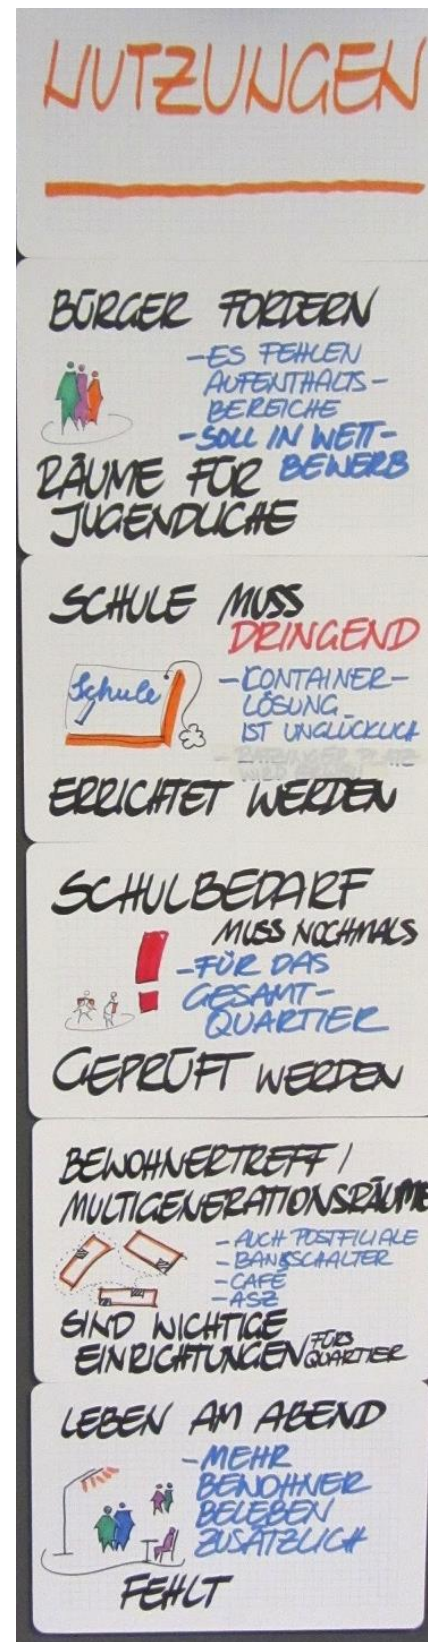 NUTZUNGEN
BÜRGER FORDERN
- ES FEHLEN
AUFENTHALTS-
BEREICHE
- SOLL IN WETT-
BEWERB
RÄUME FÜR
JUGENDLICHE
SCHULE MUSS
DRINGEND
Schule
- CONTAINER-
LÖSUNG
IST UNGLÜCKLICH
- RATZINGER PLATZ
WIRD
ERRICHTET WERDEN
SCHULBEDARF
MUSS NOCHMALS
- FÜR DAS
GESAMT-
QUARTIER
GEPRÜFT WERDEN
BEWOHNERTREFF /
MULTIGENERATIONSRÄUME
- AUCH POSTFILIALE
- BANKSCHALTER
- CAFÉ
- ASZ
SIND WICHTIGE
EINRICHTUNGEN FÜRS
QUARTIER
LEBEN AM ABEND
- MEHR
BEWOHNER
BELEBEN
ZUSÄTZLICH
FEHLT